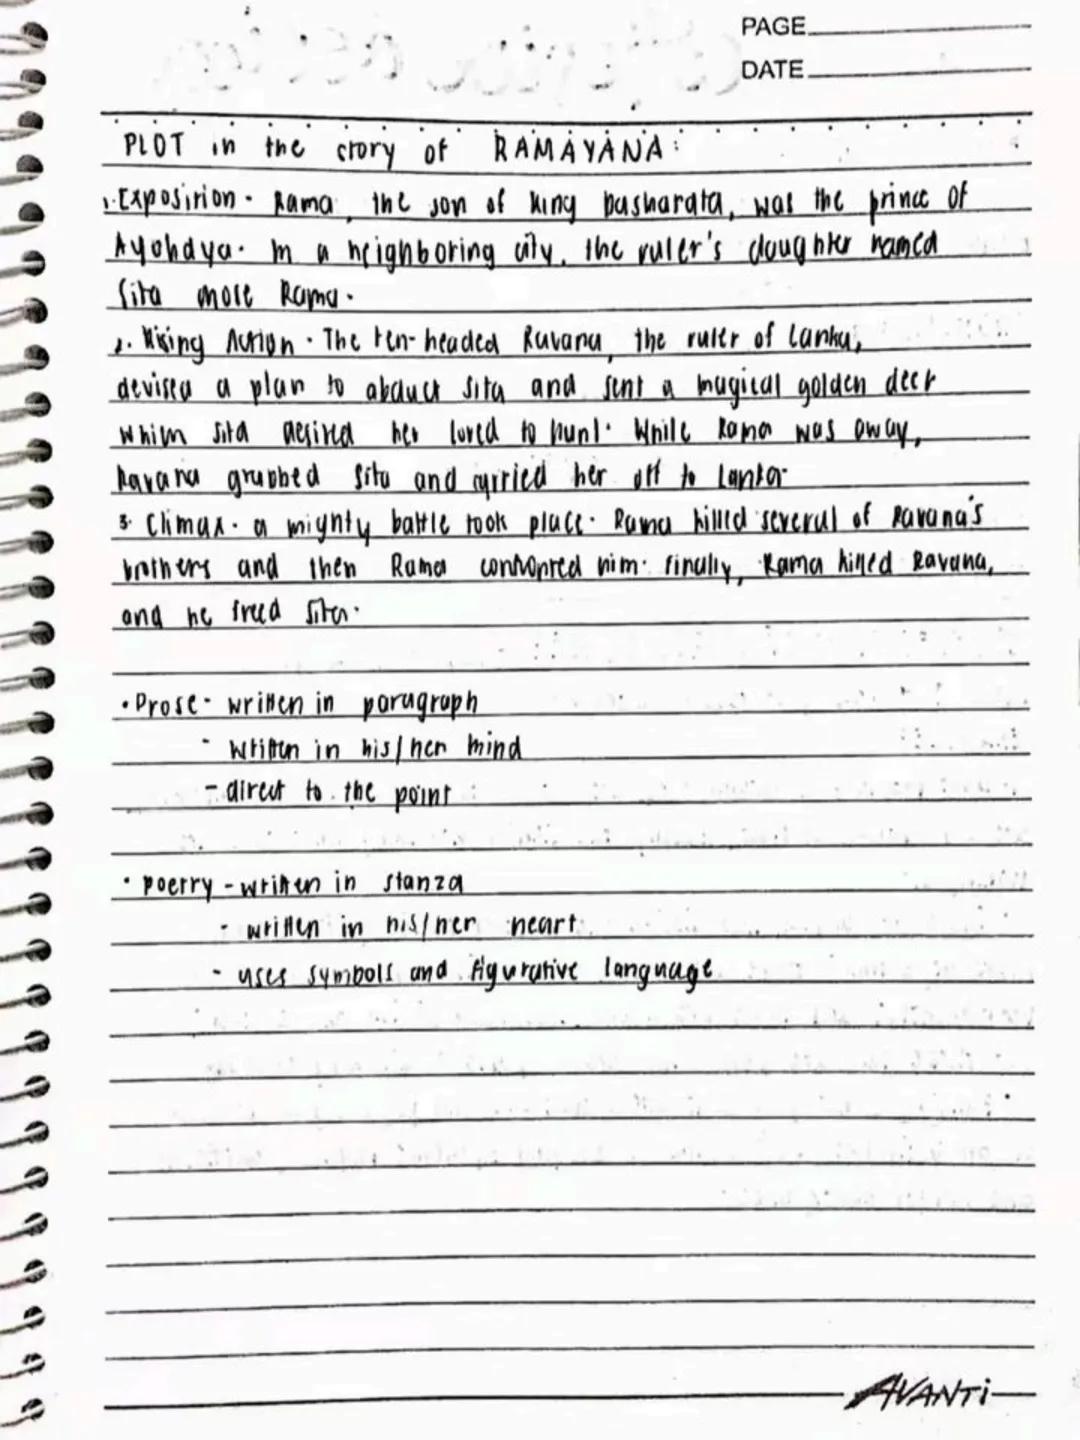 PAGE
DATE
PLOT in the story of RAMAYANA:
1. Exposition - Rama, the son of king Dasharata, was the prince of
Ayohdya. In a neighboring city, the ruler's daughter named
Sita Rama.
2. Rising Action. The ten-headed Ravana, the ruler of Lanka,
devised a plan to abduct Sita and sent a magical golden deer
which Sita desired her loved to hunt. While Rama was away,
Ravana grabbed Sita and carried her off to Lanka.
3. Climax. a mighty battle took place. Rama killed several of Ravana's
brothers and then Rama confronted him. finally, Rama killed Ravana,
and he freed Sita.
• Prose - written in paragraph
- written in his/her mind
- direct to the point
• poetry - written in stanza
- written in his/her heart
- uses symbols and figurative language
AVANTi